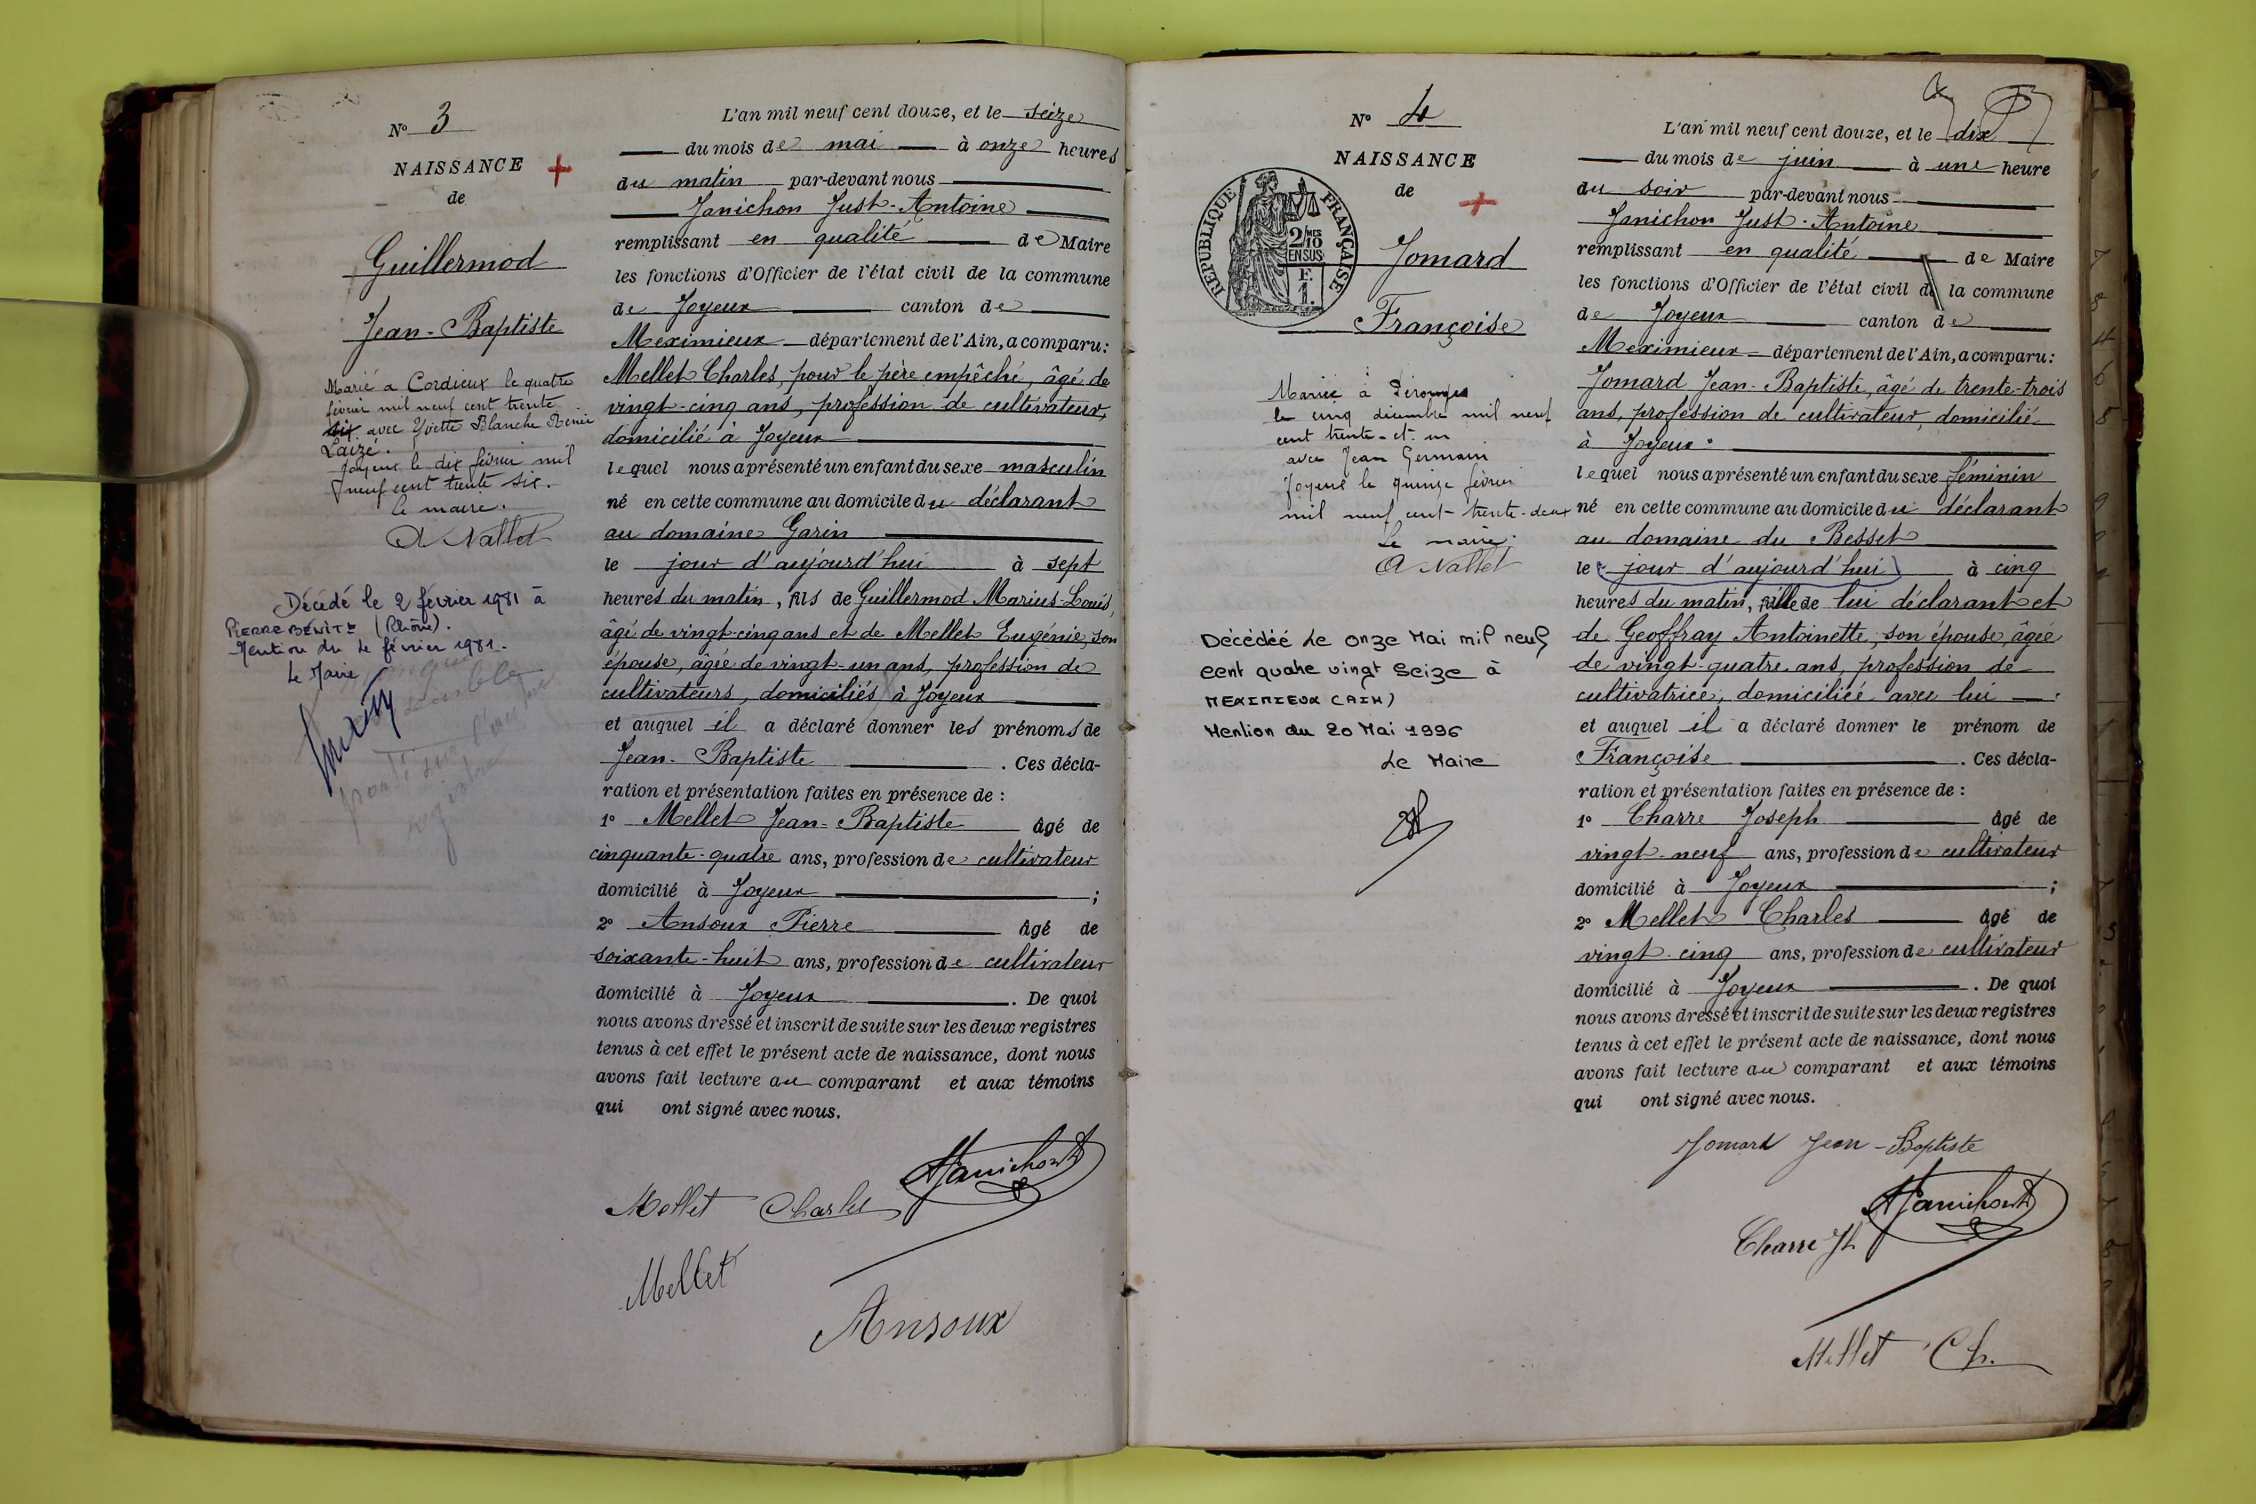 N° 3
NAISSANCE +
de
Guillermod
Jean-Baptiste
Marié à Cordieux le quatre
février mil neuf cent trente
six avec Yvette Blanche Renée
Laizé.
Joyeux le dix février mil
neuf cent trente six.
Le maire.
A Nallet
Décédé le 2 février 1981 à
PIERRE BÉNITE (Rhône).
Mention du 4 février 1981.
Le Maire
L'an mil neuf cent douze, et le seize
du mois de mai à onze heures
du matin par-devant nous
Janichon Just-Antoine
remplissant en qualité de Maire
les fonctions d'Officier de l'état civil de la commune
de Joyeux canton de
Meximieux département de l'Ain, a comparu:
Mellet Charles, pour le père empêché, âgé de
vingt-cinq ans, profession de cultivateur,
domicilié à Joyeux
lequel nous a présenté un enfant du sexe masculin
né en cette commune au domicile du déclarant
au domaine Garin
le jour d'aujourd'hui à sept
heures du matin, fils de Guillermod Marius-Louis,
âgé de vingt-cinq ans et de Mellet Eugénie, son
épouse, âgée de vingt-un ans, profession de
cultivateurs, domiciliés à Joyeux
et auquel il a déclaré donner les prénoms de
Jean-Baptiste . Ces décla-
ration et présentation faites en présence de :
1° Mellet Jean-Baptiste âgé de
cinquante-quatre ans, profession de cultivateur
domicilié à Joyeux ;
2° Ansoux Pierre âgé de
soixante-huit ans, profession de cultivateur
domicilié à Joyeux . De quoi
nous avons dressé et inscrit de suite sur les deux registres
tenus à cet effet le présent acte de naissance, dont nous
avons fait lecture au comparant et aux témoins
qui ont signé avec nous.
Janichon
Mellet Charles
Mellet
Ansoux
N° 4
NAISSANCE
de +
RÉPUBLIQUE FRANÇAISE
2/10 MES
EN SUS
F.
1.
Jomard
Françoise
Mariée à Pérouges
le cinq décembre mil neuf
cent trente-et-un
avec Jean Germain
Joyeux le quinze février
mil neuf cent trente-deux
Le maire.
A Nallet
Décédéé Le onze Mai mil neuf
cent quatre vingt seize à
MEXIMIEUX (AIN)
Mention du 20 Mai 1996
Le Maire
L'an mil neuf cent douze, et le dix
du mois de juin à une heure
du soir par-devant nous
Janichon Just-Antoine
remplissant en qualité de Maire
les fonctions d'Officier de l'état civil de la commune
de Joyeux canton de
Meximieux département de l'Ain, a comparu:
Jomard Jean-Baptiste, âgé de trente-trois
ans, profession de cultivateur, domicilié
à Joyeux
lequel nous a présenté un enfant du sexe féminin
né en cette commune au domicile du déclarant
au domaine du Besset
le jour d'aujourd'hui à cinq
heures du matin, fille de lui déclarant et
de Geoffray Antoinette, son épouse, âgée
de vingt-quatre ans, profession de
cultivatrice, domiciliée avec lui
et auquel il a déclaré donner le prénom de
Françoise . Ces décla-
ration et présentation faites en présence de :
1° Charre Joseph âgé de
vingt-neuf ans, profession de cultivateur
domicilié à Joyeux ;
2° Mellet Charles âgé de
vingt-cinq ans, profession de cultivateur
domicilié à Joyeux . De quoi
nous avons dressé et inscrit de suite sur les deux registres
tenus à cet effet le présent acte de naissance, dont nous
avons fait lecture au comparant et aux témoins
qui ont signé avec nous.
Jomard Jean-Baptiste
Janichon
Charre Jh
Mellet Ch.